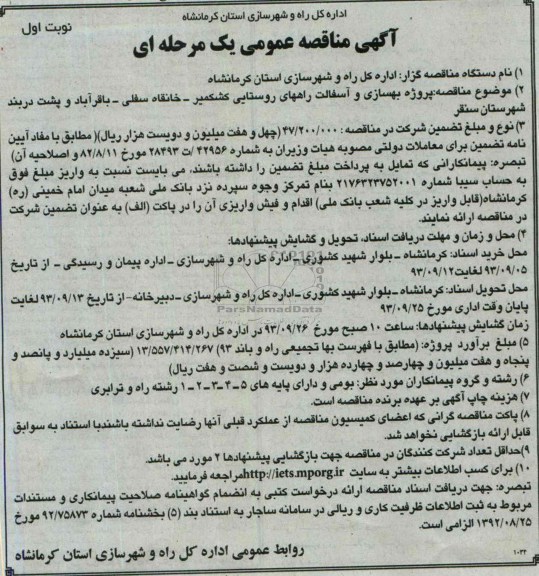 اداره کل راه و شهرسازی استان کرمانشاه
نوبت اول
آگهی مناقصه عمومی یک مرحله ای
۱) نام دستگاه مناقصه گزار: اداره کل راه و شهرسازی استان کرمانشاه
۲) موضوع مناقصه:پروژه بهسازی و آسفالت راههای روستایی کشکمیر – خانقاه سفلی – باقرآباد و پشت دربند
شهرستان سنقر
۳) نوع و مبلغ تضمین شرکت در مناقصه : ۴۷/۲۰۰/۰۰۰ (چهل و هفت میلیون و دویست هزار ریال)( مطابق با مفاد آیین
نامه تضمین برای معاملات دولتی مصوبه هیات وزیران به شماره ۴۲۹۵۶ /ت ۲۸۴۹۳ مورخ ۸۲/۸/۱۱ و اصلاحیه آن)
تبصره: پیمانکارانی که تمایل به پرداخت مبلغ تضمین را داشته باشند، می بایست نسبت به واریز مبلغ فوق
به حساب سیبا شماره ۲۱۷۶۳۲۳۷۵۲۰۰۱ بنام تمرکز وجوه سپرده نزد بانک ملی شعبه میدان امام خمینی (ره)
کرمانشاه(قابل واریز در کلیه شعب بانک ملی) اقدام و فیش واریزی آن را در پاکت (الف) به عنوان تضمین شرکت
در مناقصه ارائه نمایند.
۴) محل و زمان و مهلت دریافت اسناد، تحویل و گشایش پیشنهادها:
محل خرید اسناد: کرمانشاه – بلوار شهید کشوری – اداره کل راه و شهرسازی – اداره پیمان و رسیدگی – از تاریخ
۹۳/۰۹/۰۵ لغایت۹۳/۰۹/۱۲
محل تحویل اسناد: کرمانشاه – بلوار شهید کشوری – اداره کل راه و شهرسازی – دبیرخانه – از تاریخ ۹۳/۰۹/۱۳ لغایت
پایان وقت اداری مورخ ۹۳/۰۹/۲۵
زمان گشایش پیشنهادها: ساعت ۱۰ صبح مورخ ۹۳/۰۹/۲۶ در اداره کل راه و شهرسازی استان کرمانشاه
۵) مبلغ برآورد پروژه: (مطابق با فهرست بها تجمیعی راه و باند ۹۳) ۱۳/۵۵۷/۴۱۴/۲۶۷ (سیزده میلیارد و پانصد و
پنجاه و هفت میلیون و چهارصد و چهارده هزار و دویست و شصت و هفت ریال)
۶) رشته و گروه پیمانکاران مورد نظر: بومی و دارای پایه های ۵-۴-۳-۲-۱ رشته راه و ترابری
۷) هزینه چاپ آگهی بر عهده برنده مناقصه است.
۸) پاکت مناقصه گرانی که اعضای کمیسیون مناقصه از عملکرد قبلی آنها رضایت نداشته باشندبا استناد به سوابق
قابل ارائه بازگشایی نخواهد شد.
۹)حداقل تعداد شرکت کنندگان در مناقصه جهت بازگشایی پیشنهادها ۲ مورد می باشد.
۱۰) برای کسب اطلاعات بیشتر به سایت http://iets.mporg.irمراجعه فرمایید.
تبصره: جهت دریافت اسناد مناقصه ارائه درخواست کتبی به انضمام گواهینامه صلاحیت پیمانکاری و مستندات
مربوط به ثبت اطلاعات ظرفیت کاری و ریالی در سامانه ساجار به استناد بند (۵) بخشنامه شماره ۹۲/۷۵۸۷۳ مورخ
۱۳۹۲/۰۸/۲۵ الزامی است.
روابط عمومی اداره کل راه و شهرسازی استان کرمانشاه
۱۰۳۲
ParsNamadData